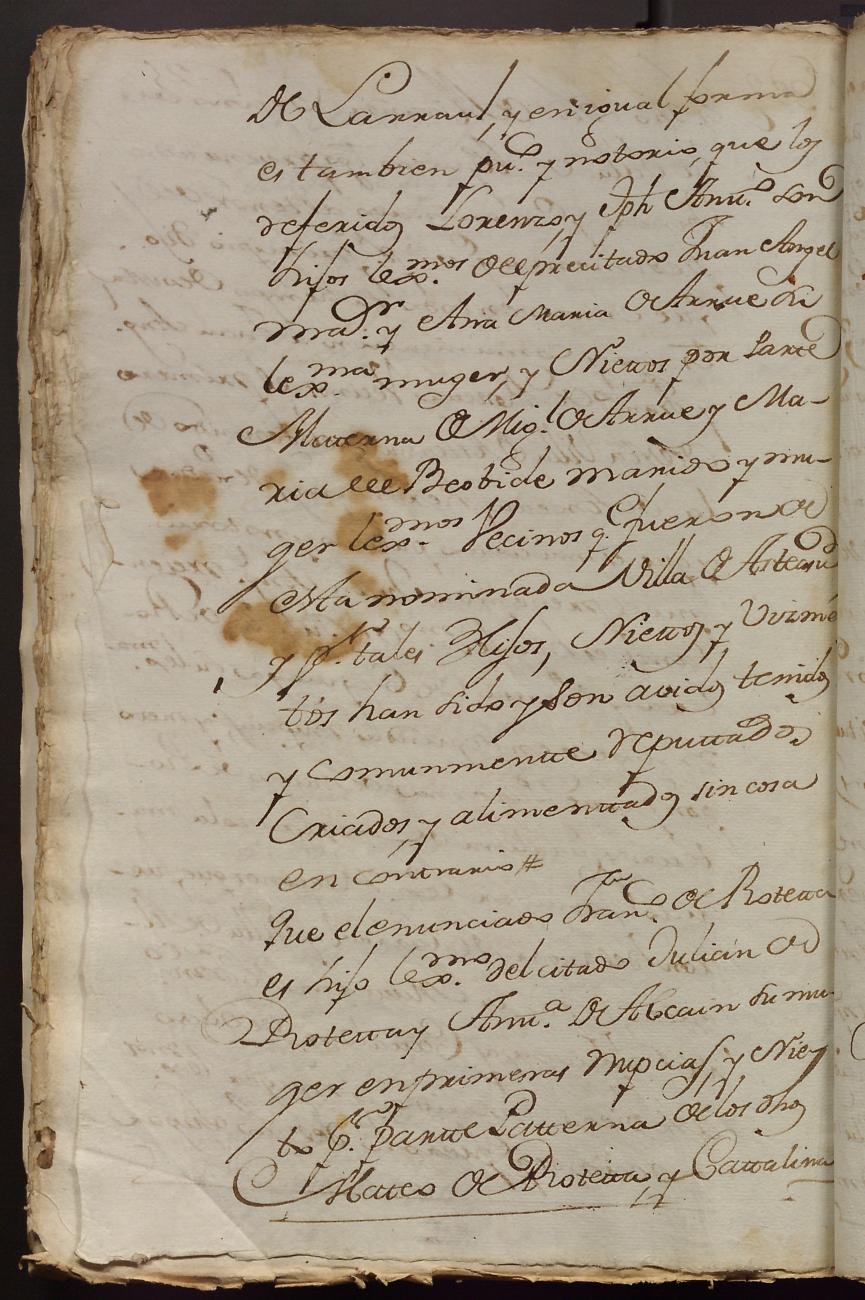 de Larraul, y en igual forma
es tambien pu.co y notorio, que los
referidos Lorenzo, y Jph Antt.o son
hijos lexmos. del precitado Juan Angel
maior y Ana Maria de Arrue su
lexma. muger, y Niettos por Partte
Matterna de Mig.l de Arrue y Ma-
ria de Beobide marido y mu-
ger lexmos. Vecinos q.e fueron de
esta nominada Villa de Asteasu
y p.r tales Hijos, Niettos, y Viznie
tos han sido y son avidos tenidos
y comunmentte reputtados,
Criados, y alimenttados sin cosa
en conttrario #
Que el enunciado Fran.co de Rotetta
es hijo lexmo. del citado Julian de
Rotetta y Antt.a de Abcain su mu-
ger en primeras Nupcias, y Niet-
to p.r partte Patterna de los dhos
Matteo de Rotetta, y Cattalina